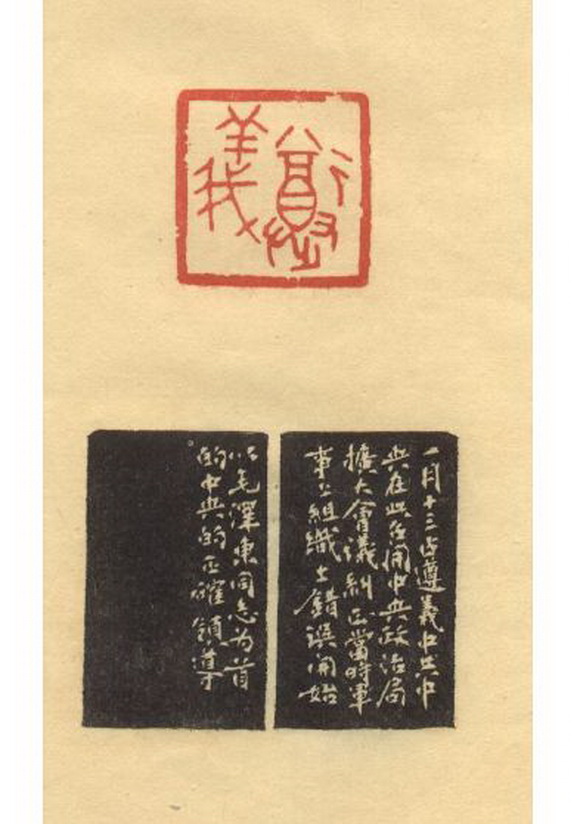 遵
義
一月十三 遵義中共中
央在此召開中央政治局
擴大會議糾正當時軍
事上組織上錯誤開始
以毛澤東同志为首
的中央的正確領導